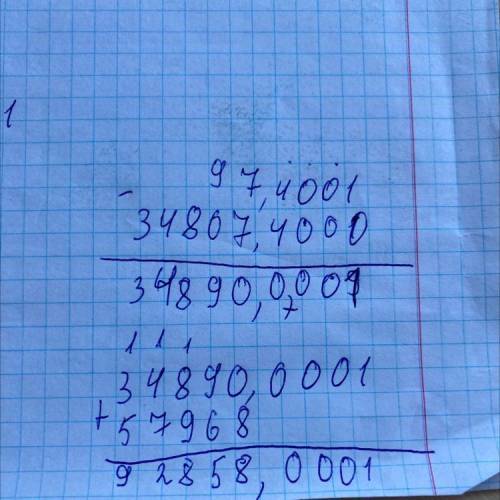 1
97,4001
- 34807,4000
34890,0001
111
34890,0001
+ 57968
92858,0001